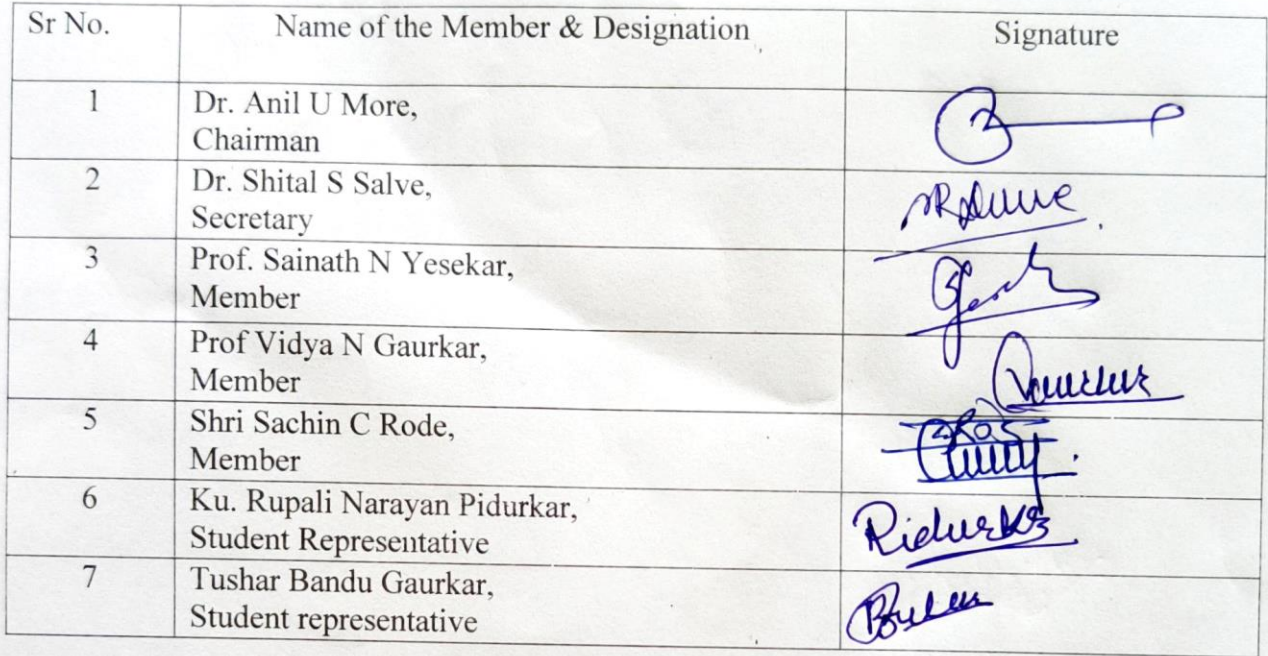 Sr No. Name of the Member & Designation Signature
1 Dr. Anil U More,
Chairman
2 Dr. Shital S Salve,
Secretary
3 Prof. Sainath N Yesekar,
Member
4 Prof Vidya N Gaurkar,
Member
5 Shri Sachin C Rode,
Member
6 Ku. Rupali Narayan Pidurkar,
Student Representative
7 Tushar Bandu Gaurkar,
Student representative